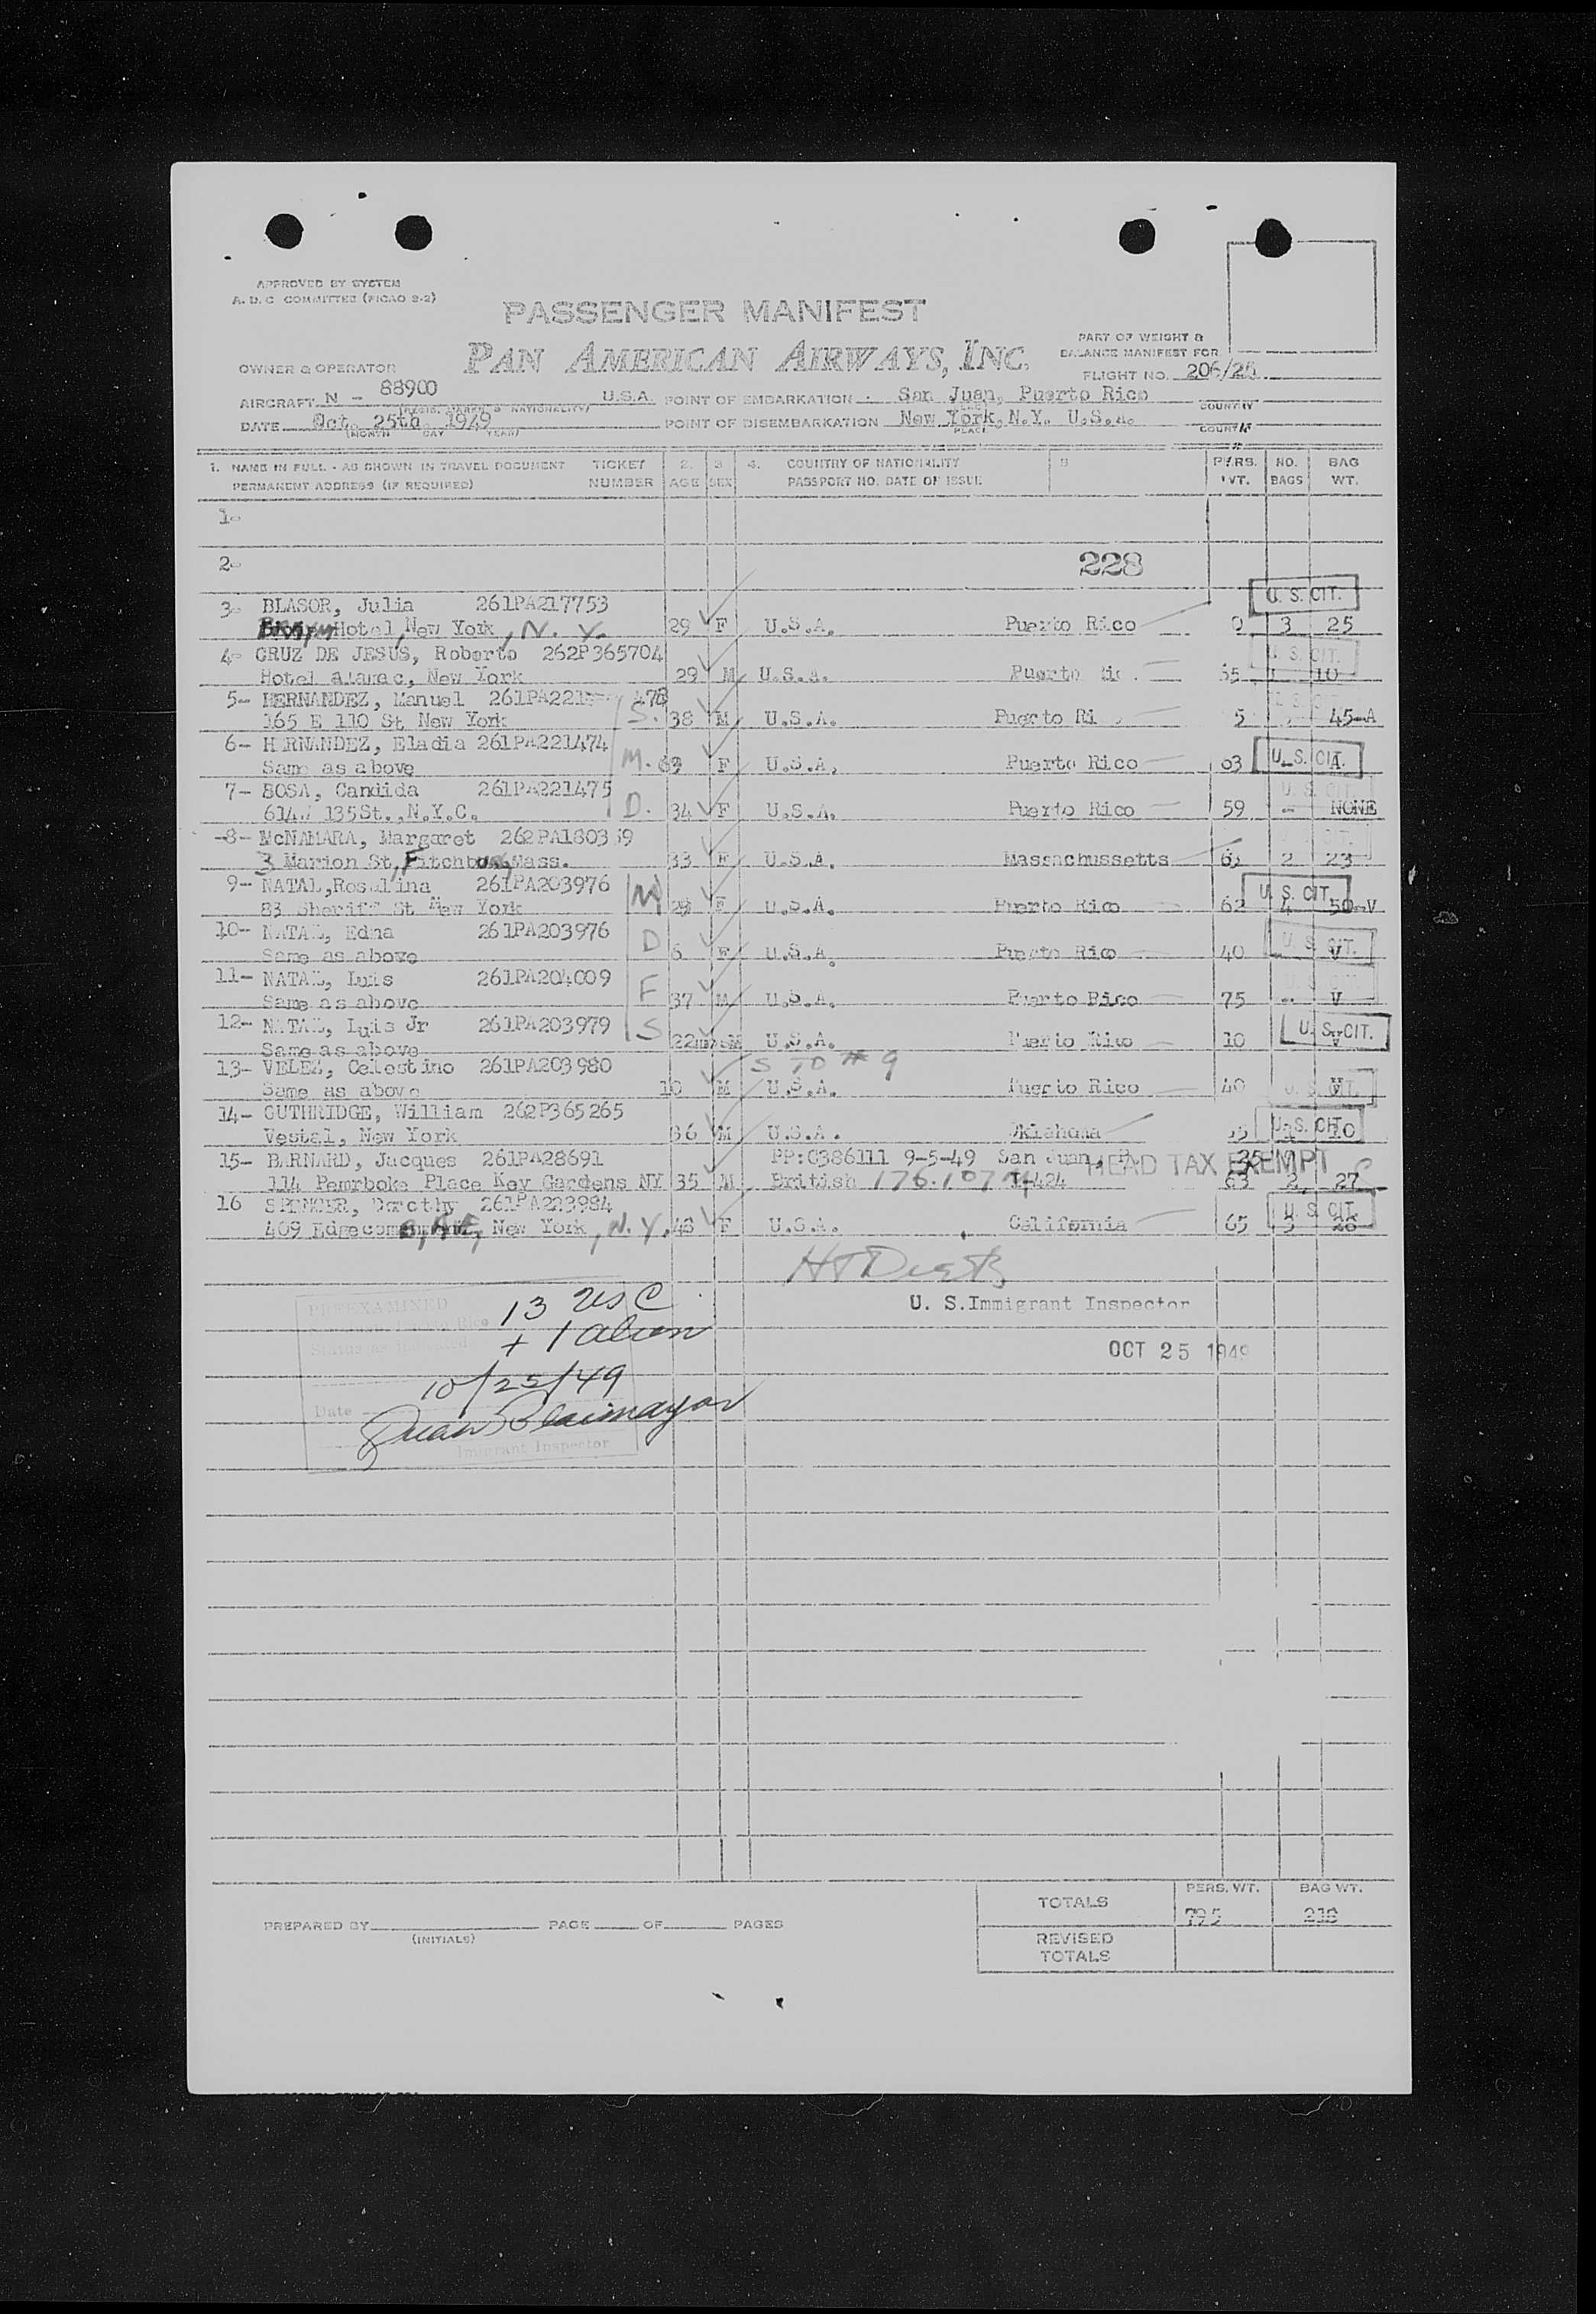 APPROVED BY SYSTEM
A. D. C COMMITTEE (PICAO 2-2)
PASSENGER MANIFEST
PAN AMERICAN AIRWAYS, INC.
PART OF WEIGHT &
BALANCE MANIFEST FOR
FLIGHT NO. 206/25
OWNER & OPERATOR
AIRCRAFT N - 88900 U.S.A. POINT OF EMBARKATION San Juan, Puerto Rico
(REGIS. MARKS & NATIONALITY) PLACE COUNTRY
DATE Oct. 25th 1949 POINT OF DISEMBARKATION New York, N.Y. U.S.A.
(MONTH DAY YEAR) PLACE COUNTRY
1. NAME IN FULL - AS SHOWN IN TRAVEL DOCUMENT TICKET 2. 3 4. COUNTRY OF NATIONALITY 5 PERS. NO. BAG
PERMANENT ADDRESS (IF REQUIRED) NUMBER AGE SEX PASSPORT NO. DATE OF ISSUE WT. BAGS WT.
1-
2- 228
3- BLASOR, Julia 261PA217753 U. S. CIT.
Hotel, New York, N. Y. 29 F U.S.A. Puerto Rico 3 25
4- CRUZ DE JESUS, Roberto 262P365704 U. S. CIT.
Hotel, New York 29 M U.S.A. Puerto 10
5- HERNANDEZ, Manuel 261PA221 473
165 E 110 St New York S. 38 M U.S.A. Puerto 45-A
6- HERNANDEZ, Eladia 261PA221474
Same as above M. 63 F U.S.A. Puerto Rico 63 U. S. CIT. A
7- SOSA, Candida 261PA221475 U. S. CIT.
614 135St., N.Y.C. D. 34 F U.S.A. Puerto Rico 59 - NONE
-8- McNAMARA, Margaret 262PA180359 CIT.
3 Marion St, Fitchburg, Mass. 33 F U.S.A. Massachussetts 2 23
9- NATAL, Rosalina 261PA203976 M U. S. CIT.
83 Sheriff St New York F U.S.A. Puerto Rico 62 4 50-V
10- NATAL, Edna 261PA203976 D U. S. CIT.
Same as above 6 F U.S.A. Puerto Rico 40 V
11- NATAL, Luis 261PA204009 F
Same as above 37 M U.S.A. Puerto Rico 75 - V
12- NATAL, Luis Jr 261PA203979 S U. S. CIT.
Same as above 22 M U.S.A. Puerto Rico 10 V
13- VELEZ, Celestino 261PA203980 S TO # 9
Same as above 10 M U.S.A. Puerto Rico 40 U. S. CIT. V
14- GUTHRIDGE, William 262P365265 U. S. CIT.
Vestal, New York 36 M U.S.A. Oklahoma 10
15- BARNARD, Jacques 261PA28691 PP:C386111 9-5-49 San Juan, P. HEAD TAX EXEMPT
114 Pemrboke Place Kew Gardens NY 35 M British I-424 63 2 27
16 SPENCER, Dorothy 261PA223984 U. S. CIT.
409 Edgecombe, Ave, New York, N. Y. 48 F U.S.A. California 65 3 28
U. S. Immigrant Inspector
OCT 25 1949
PREEXAMINED
13 USC
+ 1 alien
10/25/49
Date
Imigrant Inspector
TOTALS PERS. WT. BAG WT.
795 218
PREPARED BY PAGE OF PAGES
(INITIALS)
REVISED
TOTALS